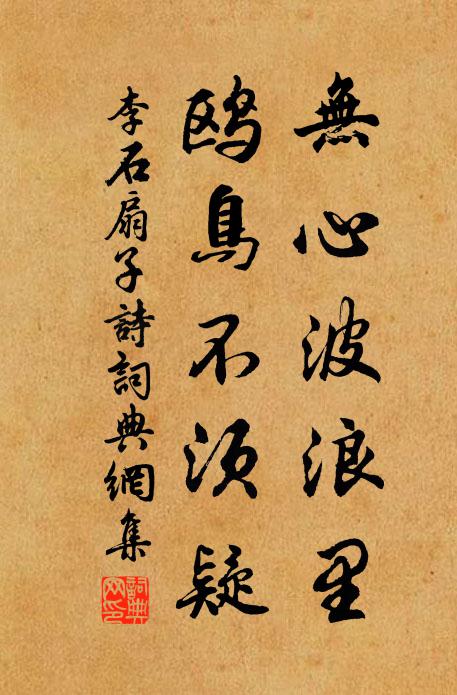 無心波浪里
鸥鳥不須疑
李石扇子詩詞典網集
詞典
网印